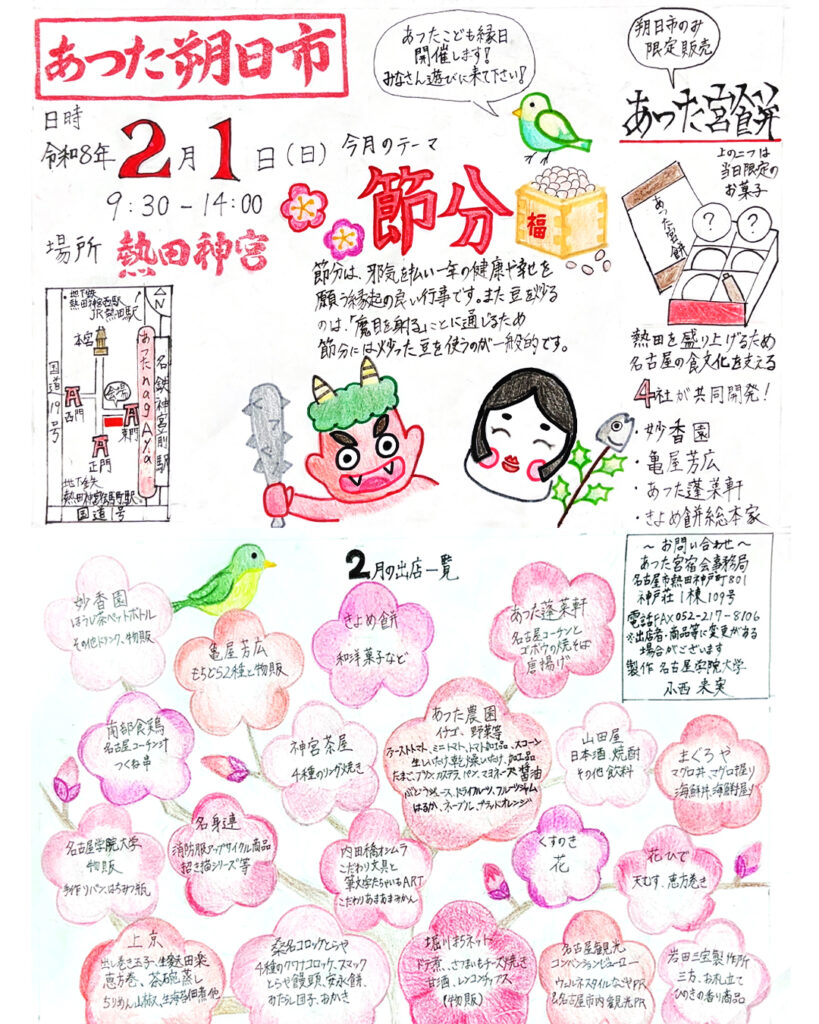 あつた朔日市
あつたこども縁日
開催します!
みなさん遊びに来て下さい!
朔日市のみ
限定販売
あつた宮餅
日時
令和8年2月1日(日)
9:30-14:00
場所 熱田神宮
今月のテーマ
節分
福
節分は、邪気を払い一年の健康や幸せを
願う縁起の良い行事です。また豆を炒る
のは、「魔目を射る」ことに通じるため
節分には炒った豆を使うのが一般的です。
上の二つは
当日限定の
お菓子
あつた宮餅
?
?
熱田を盛り上げるため
名古屋の食文化を支える
4社が共同開発!
・妙香園
・亀屋芳広
・あつた蓬莱軒
・きよめ餅総本家
・地下鉄
熱田神宮西駅
JR熱田駅
N
本宮
国道19号
西門
会場
東門
正門
あつたnagAya
名鉄神宮前駅
地下鉄
熱田神宮伝馬町駅
国道1号
2月の出店一覧
~お問い合わせ~
あつた宮宿会事務局
名古屋市熱田神戸町801
神戸荘1棟109号
電話FAX052-217-8106
※出店者・商品等に変更がある
場合がございます
製作 名古屋学院大学
小西 来実
妙香園
ほうじ茶ペットボトル
その他ドリンク、物販
亀屋芳広
もちどら2種と物販
きよめ餅
和洋菓子など
あつた蓬莱軒
名古屋コーチンと
ゴボウの焼そば
唐揚げ
南部食鶏
名古屋コーチン汁
つくね串
神宮茶屋
4種のリング焼き
あつた農園
イチゴ、野菜等
ファーストトマト、ミニトマト、トマト加工品、スコーン
生しいたけ、乾しいたけ、加工品
たまご、プリン、カステラ、パン、マヨネーズ、醤油
ぶどうジュース、ドライフルーツ、フルーツジャム
はるか、ネーブル、ブラッドオレンジ
山田屋
日本酒、焼酎
その他飲料
まぐろや
マグロ丼、マグロ握り
海鮮丼、海鮮握り
名古屋学院大学
物販
手作りパン、はちみつ瓶
名身連
消防服アップサイクル商品
招き猫シリーズ等
内田橋オシムラ
こだわり文具と
筆文字たちゃいるART
こだわりあまあまみかん
くすのき
花
花ひで
天むす、恵方巻き
上京
出し巻き玉子、生麩田楽
恵方巻、茶碗蒸し
ちりめん山椒、生海苔佃煮他
桑名コロッケとらや
4種のクワナコロッケ、スマック
とらや饅頭、安永餅、
みたらし団子、おかき
堀川まちネット
ドテ煮、さつまいもチーズ焼き
甘酒、レンコンチップス
(物販)
名古屋観光
コンベンションビューロー
ウェルネスタイルなごやPR
名古屋市内観光PR
岩田三宝製作所
三方、お札立て
ひのきの香り商品